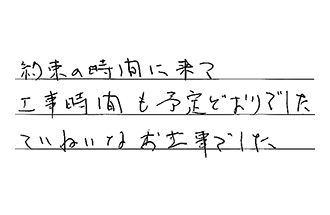 約束の時間に来て
工事時間も予定どおりでした
ていねいなお工事でした、